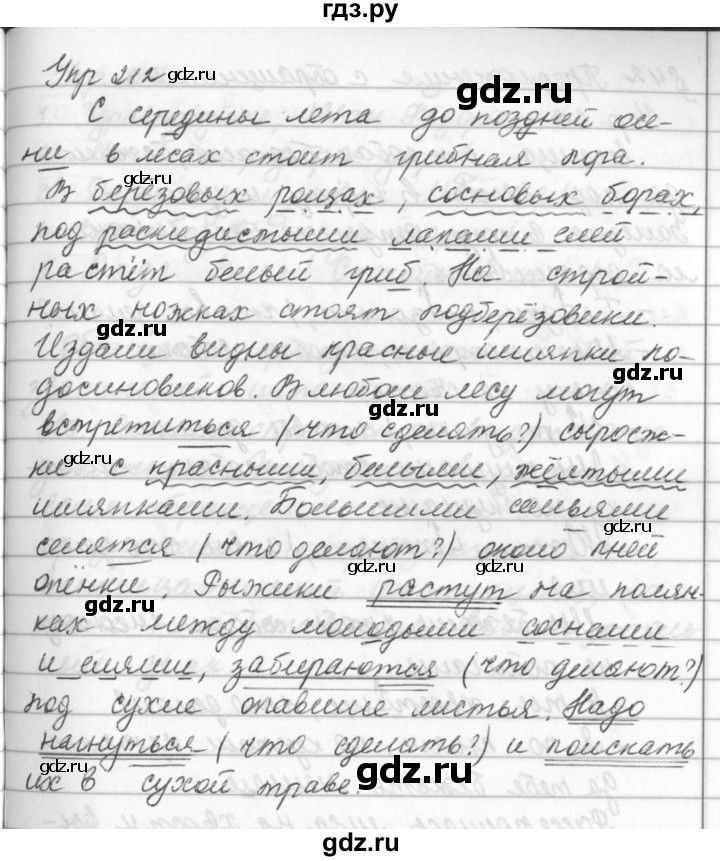 гдз.ру
Упр 212
gdz.ru
gdz.ru
С середины лета до поздней осе-
ни в лесах стоит грибная пора.
gdz.ru
В берёзовых рощах, сосновых борах,
под раскидистыми лапами елей
растёт белый гриб. На строй-
ных ножках стоят подберёзовики.
gdz.ru
Издали видны красные шляпки по-
gdz.ru
досиновиков. В любом лесу могут
gdz.ru
встретиться (что сделать?) сыроеж-
gdz.ru
ки с красными, белыми, жёлтыми
шляпками. Большими семьями
селятся (что делают?) около пней
gdz.ru
gdz.ru
опёнки. Рыжики растут на полян-
gdz.ru
ках между молодыми соснами
и елями, забираются (что делают?)
под сухие опавшие листья. Надо
gdz.ru
нагнуться (что сделать?) и поискать
их в сухой траве.
gdz.ru
gdz.ru